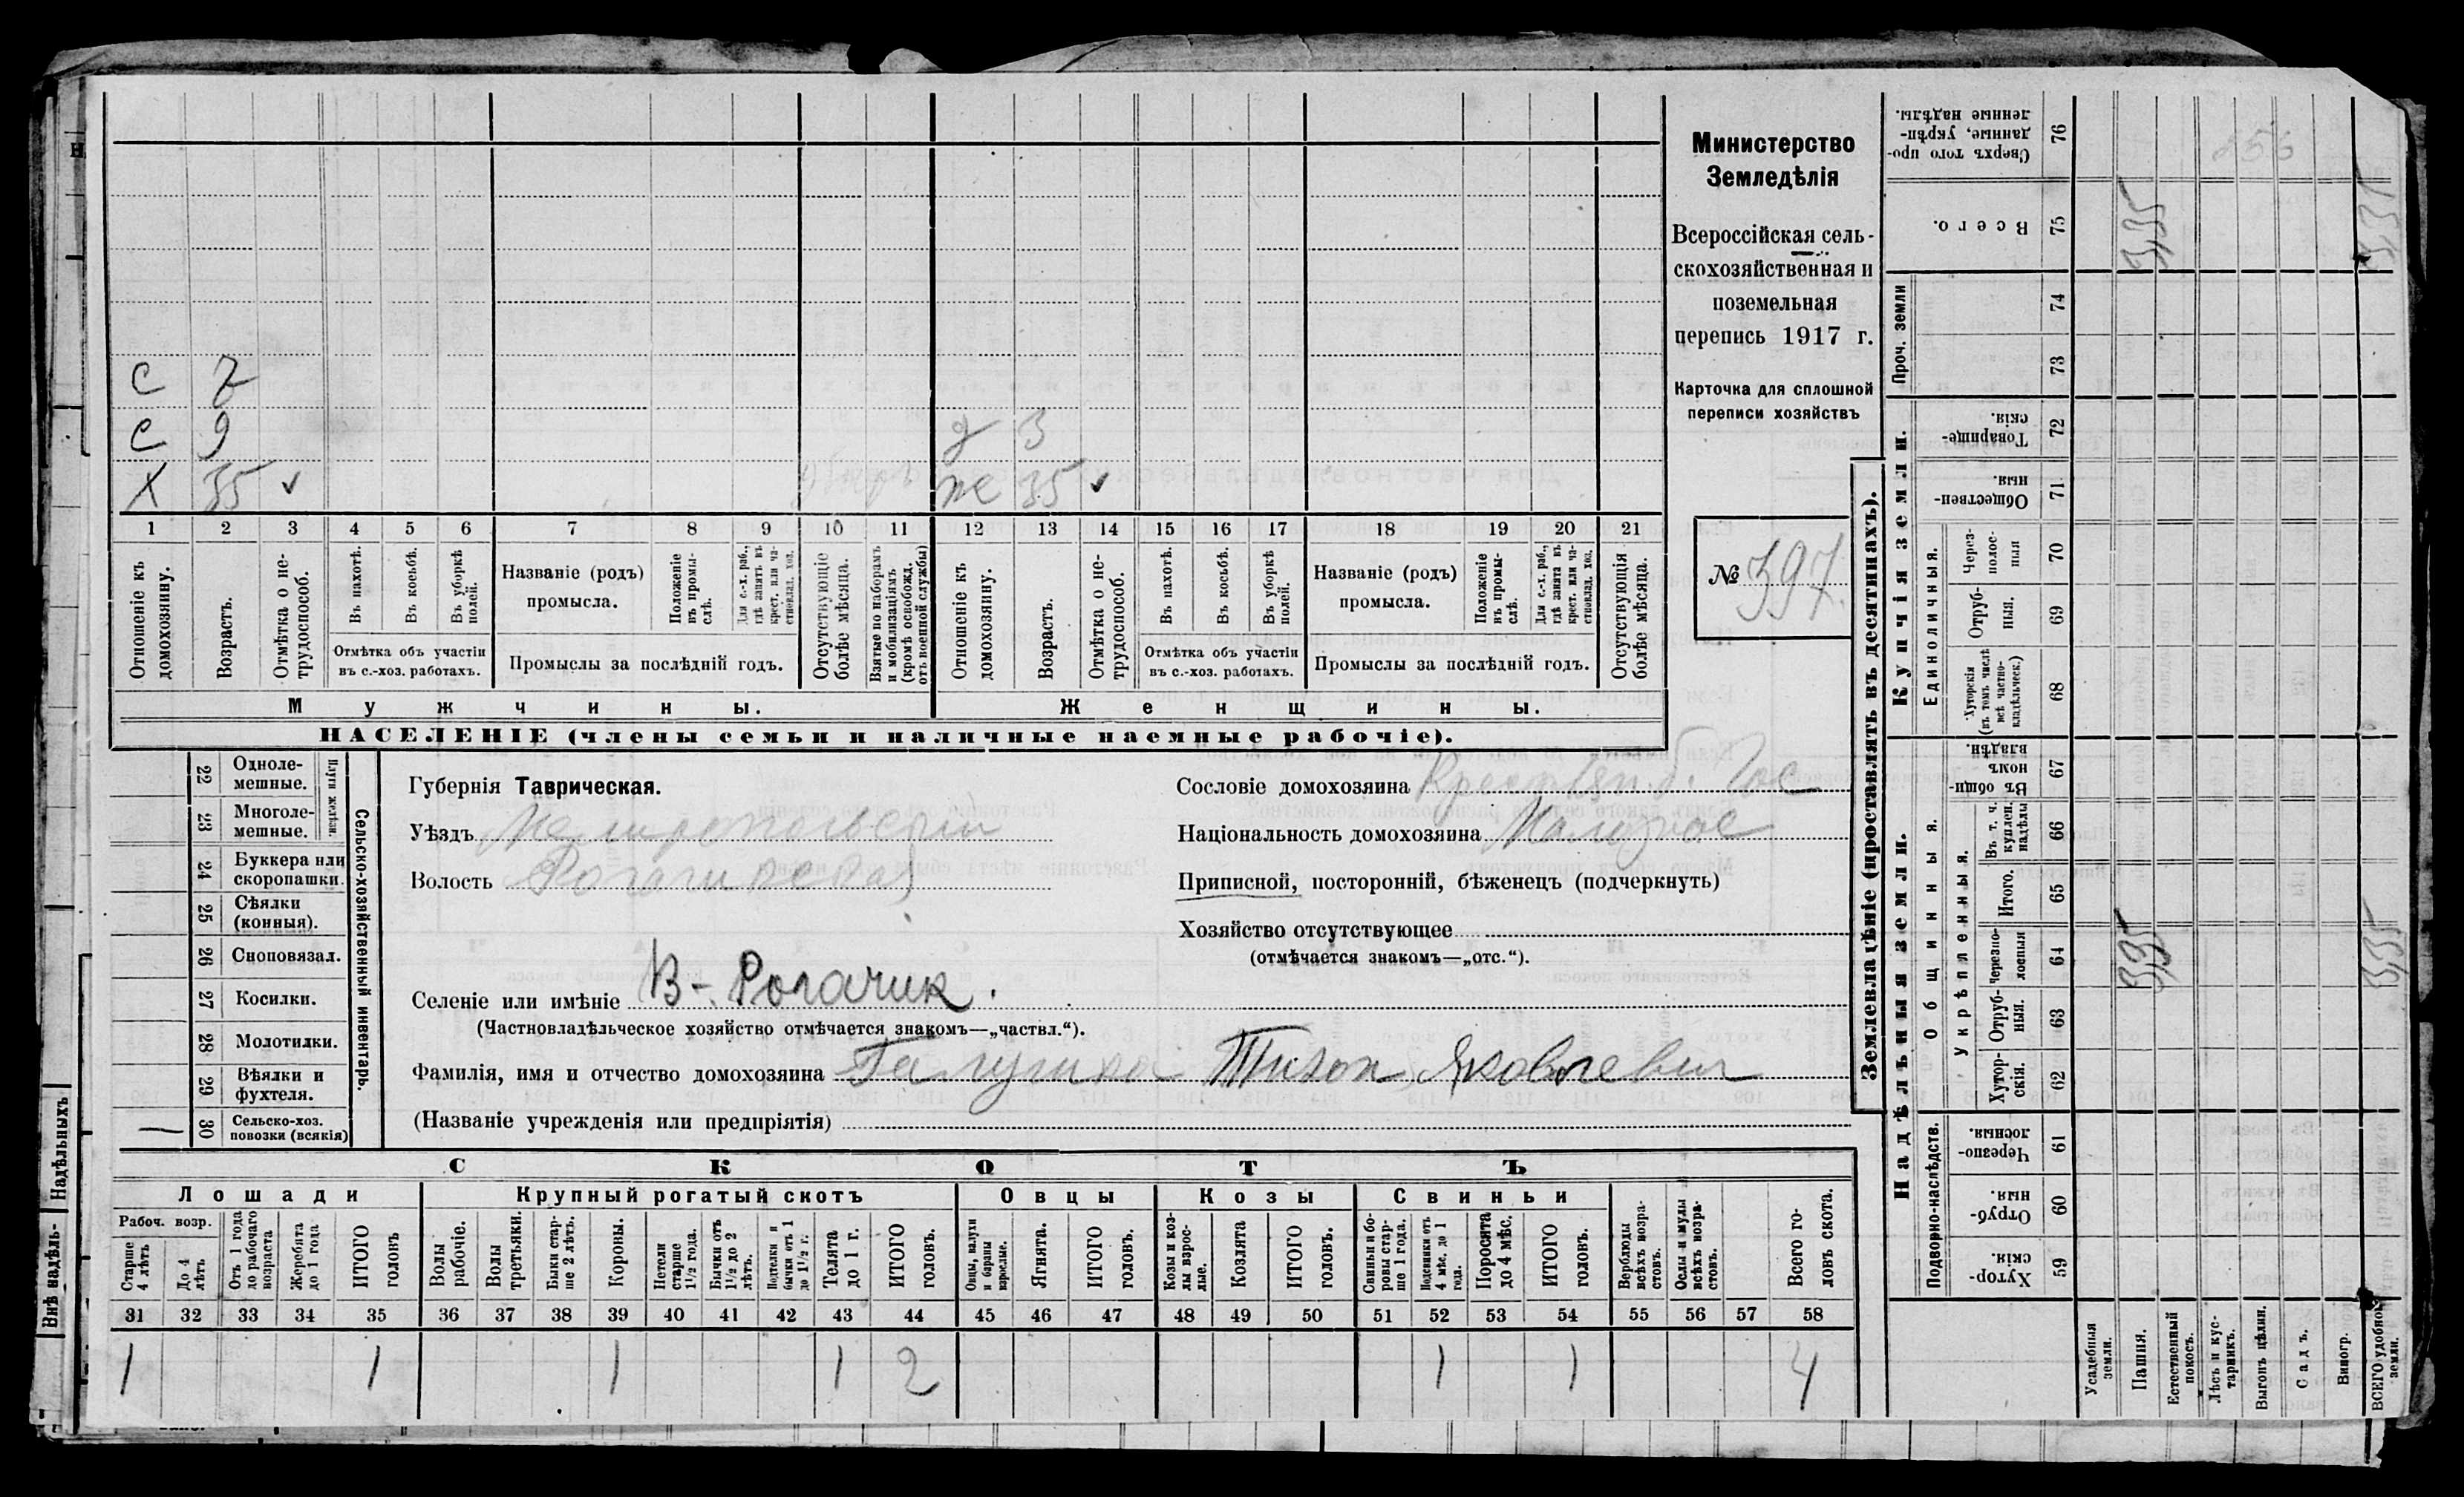 с 7
с 9 д 3
Х 35 ✓ ж 35 ✓
1 2 3 4 5 6 7 8 9 10 11 12 13 14 15 16 17 18 19 20 21
Отношеніе къ домохозяину.
Возрастъ.
Отмѣтка о не-
трудоспособ.
Въ пахотѣ.
Въ косьбѣ.
Въ уборкѣ
полей.
Отмѣтка объ участіи
въ с.-хоз. работахъ.
Названіе (родъ)
промысла.
Положеніе
въ промы-
слѣ.
Для с.-х. раб.,
гдѣ занятъ въ
крест. или ча-
стновлад. хоз.
Промыслы за послѣдній годъ.
Отсутствующіе
болѣе мѣсяца.
Взятые по наборамъ
и мобилизаціямъ
(кромѣ освобожд.
отъ военной службы)
Отношеніе къ
домохозяину.
Возрастъ.
Отмѣтка о не-
трудоспособ.
Въ пахотѣ.
Въ косьбѣ.
Въ уборкѣ
полей.
Отмѣтка объ участіи
въ с.-хоз. работахъ.
Названіе (родъ)
промысла.
Положеніе
въ промы-
слѣ.
Для с.-х. раб.,
гдѣ занята въ
крест. или ча-
стновлад. хоз.
Промыслы за послѣдній годъ.
Отсутствующія
болѣе мѣсяца.
Мужчины. Женщины.
НАСЕЛЕНІЕ (члены семьи и наличные наемные рабочіе).
Министерство
Земледѣлія
Всероссійская сель-
скохозяйственная и
поземельная
перепись 1917 г.
Карточка для сплошной
переписи хозяйствъ
№ 397.
22 Одноле-
мешные.
23 Многоле-
мешные.
Плуги желѣзн.
24 Буккера или
скоропашки.
25 Сѣялки
(конныя).
26 Сноповязал.
27 Косилки.
28 Молотилки.
29 Вѣялки и
фухтеля.
30 Сельско-хоз.
повозки (всякія)
Сельско-хозяйственный инвентарь.
Губернія Таврическая.
Уѣздъ Мелитопольскій
Волость Рогачикская
Селеніе или имѣніе В-Рогачик.
(Частновладѣльческое хозяйство отмѣчается знакомъ—„частвл.“).
Фамилія, имя и отчество домохозяина Галушка Тихон Яковлевич
(Названіе учрежденія или предпріятія)
Сословіе домохозяина
Національность домохозяина Малорос
Приписной, посторонній, бѣженецъ (подчеркнуть)
Хозяйство отсутствующее
(отмѣчается знакомъ—„отс.“).
СКОТЪ
Лошади Крупный рогатый скотъ Овцы Козы Свиньи
Рабоч. возр.
Старше
4 лѣтъ
До 4
лѣтъ
Отъ 1 года
до рабочаго
возраста
Жеребята
до 1 года
ИТОГО
головъ
Волы
рабочіе.
Волы
третьяки.
Быки стар-
ше 2 лѣтъ.
Коровы.
Нетели
старше
1½ года.
Бычки отъ
1½ до 2
лѣтъ.
Подтелки и
бычки отъ 1
до 1½ г.
Телята
до 1 г.
ИТОГО
головъ.
Овцы, валухи
и бараны
взрослые.
Ягнята.
ИТОГО
головъ.
Козы и коз-
лы взрос-
лые.
Козлята
ИТОГО
головъ.
Свиньи и бо-
ровы стар-
ше 1 года.
Подсвинки отъ
4 мѣс. до 1
года.
Поросята
до 4 мѣс.
ИТОГО
головъ.
Верблюды
всѣхъ возра-
стовъ.
Ослы и мулы
всѣхъ возра-
стовъ.
Всего го-
ловъ скота.
31 32 33 34 35 36 37 38 39 40 41 42 43 44 45 46 47 48 49 50 51 52 53 54 55 56 57 58
1 1 1 1 2 1 1 4
Землевладѣніе (проставлять въ десятинахъ).
Сверхъ того про-
данные, укрѣп-
ленные надѣлы.
76
Всего.
75
335
Проч. земли
74
73
Купчія земли.
Товарище-
скія.
72
Обществен-
ныя.
71
Единоличныя.
Через-
полос-
ныя
70
Отруб-
ныя.
69
Хуторскія
(въ томъ числѣ
всѣ частно-
владѣльческ.)
68
Надѣльныя земли.
Общинныя.
Въ общин-
номъ
владѣн.
67
Укрѣпленныя.
Въ т. ч.
куплен.
надѣлы
66
Итого.
65
Черезпо-
лосныя
64
335
335
Отруб-
ныя.
63
Хутор-
скія.
62
Подворно-наслѣдств.
Черезпо-
лосныя.
61
Отруб-
ныя.
60
Хутор-
скія.
59
Усадебныя
земли.
Пашня.
Естественный
покосъ.
Лѣсъ и кус-
тарникъ.
Выгонъ цѣлин.
Садъ.
Виногр.
ВСЕГО удобной
земли.
Надѣльныхъ
Внѣ надѣль-